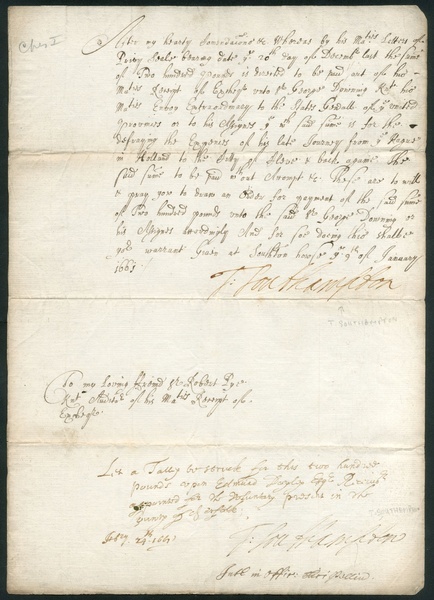 Chas I
After my hearty Comendacons &c Whereas by his Maties Letters of
Privy Seale bearing date ye 20th day of Decembr last the summe
of Two hundred pounds is directed to be paid out of his
Maties Receipt of Excheqr unto Sr George Downing Knt his
Maties Envoy Extraordinary to the States Genall of ye united
Provinces or to his Assignes ye wch said summe is for the
defraying the Expences of his late Journey from ye Hague
in Holland to the Citty of Cleve & back againe The
said summe to be paid wthout Accompt &c. These are to will
& pray you to draw an Order for payment of the said summe
of Two hundred pounds unto the said Sr George Downing or
his Assignes accordingly And for soe doeing this shalbee
yor warrant Given at Southton howse ye 9th of January
1661
T: Southampton
T. SOUTHAMPTON
To my Loving Freind Sr Robert Pye
Knt Auditor of his Maties Receipt of
Excheqr
Let a Tally be struck for this two hundred
pounds upon Edmund Esqr Receivr
for the Voluntary present in the
County of
T. SOUTHAMPTON
Feby 24th 1661
T: Southampton
in Office